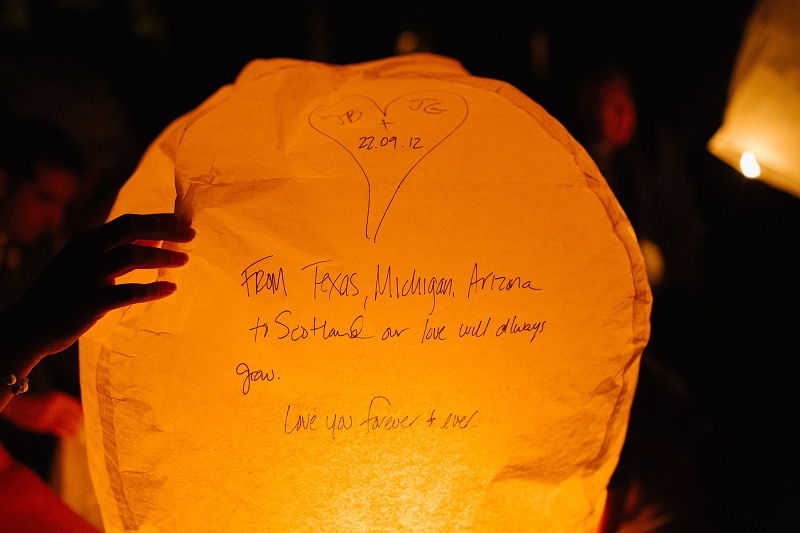 JB + JG
22.09.12
From Texas, Michigan, Arizona
to Scotland our love will always
grow.
Love you forever & ever.